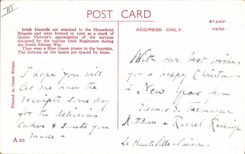 III
POST CARD
Irish Guards are attached to the Household
Brigade and were formed in 1900 as a mark of
Queen Victoria's appreciation of the services
rendered by the various Irish Regiments during
the South African War.
They wear a Blue Green plume in the bearskin.
The buttons on the tunics are spaced by fours.
ADDRESS ONLY
STAMP
HERE
Printed in Great Britain
A 30
I hope you will
let me have the
receipts some day
for the delicious
& you
made
With our best wishes
for a happy Christmas
& New Year from
& 
La